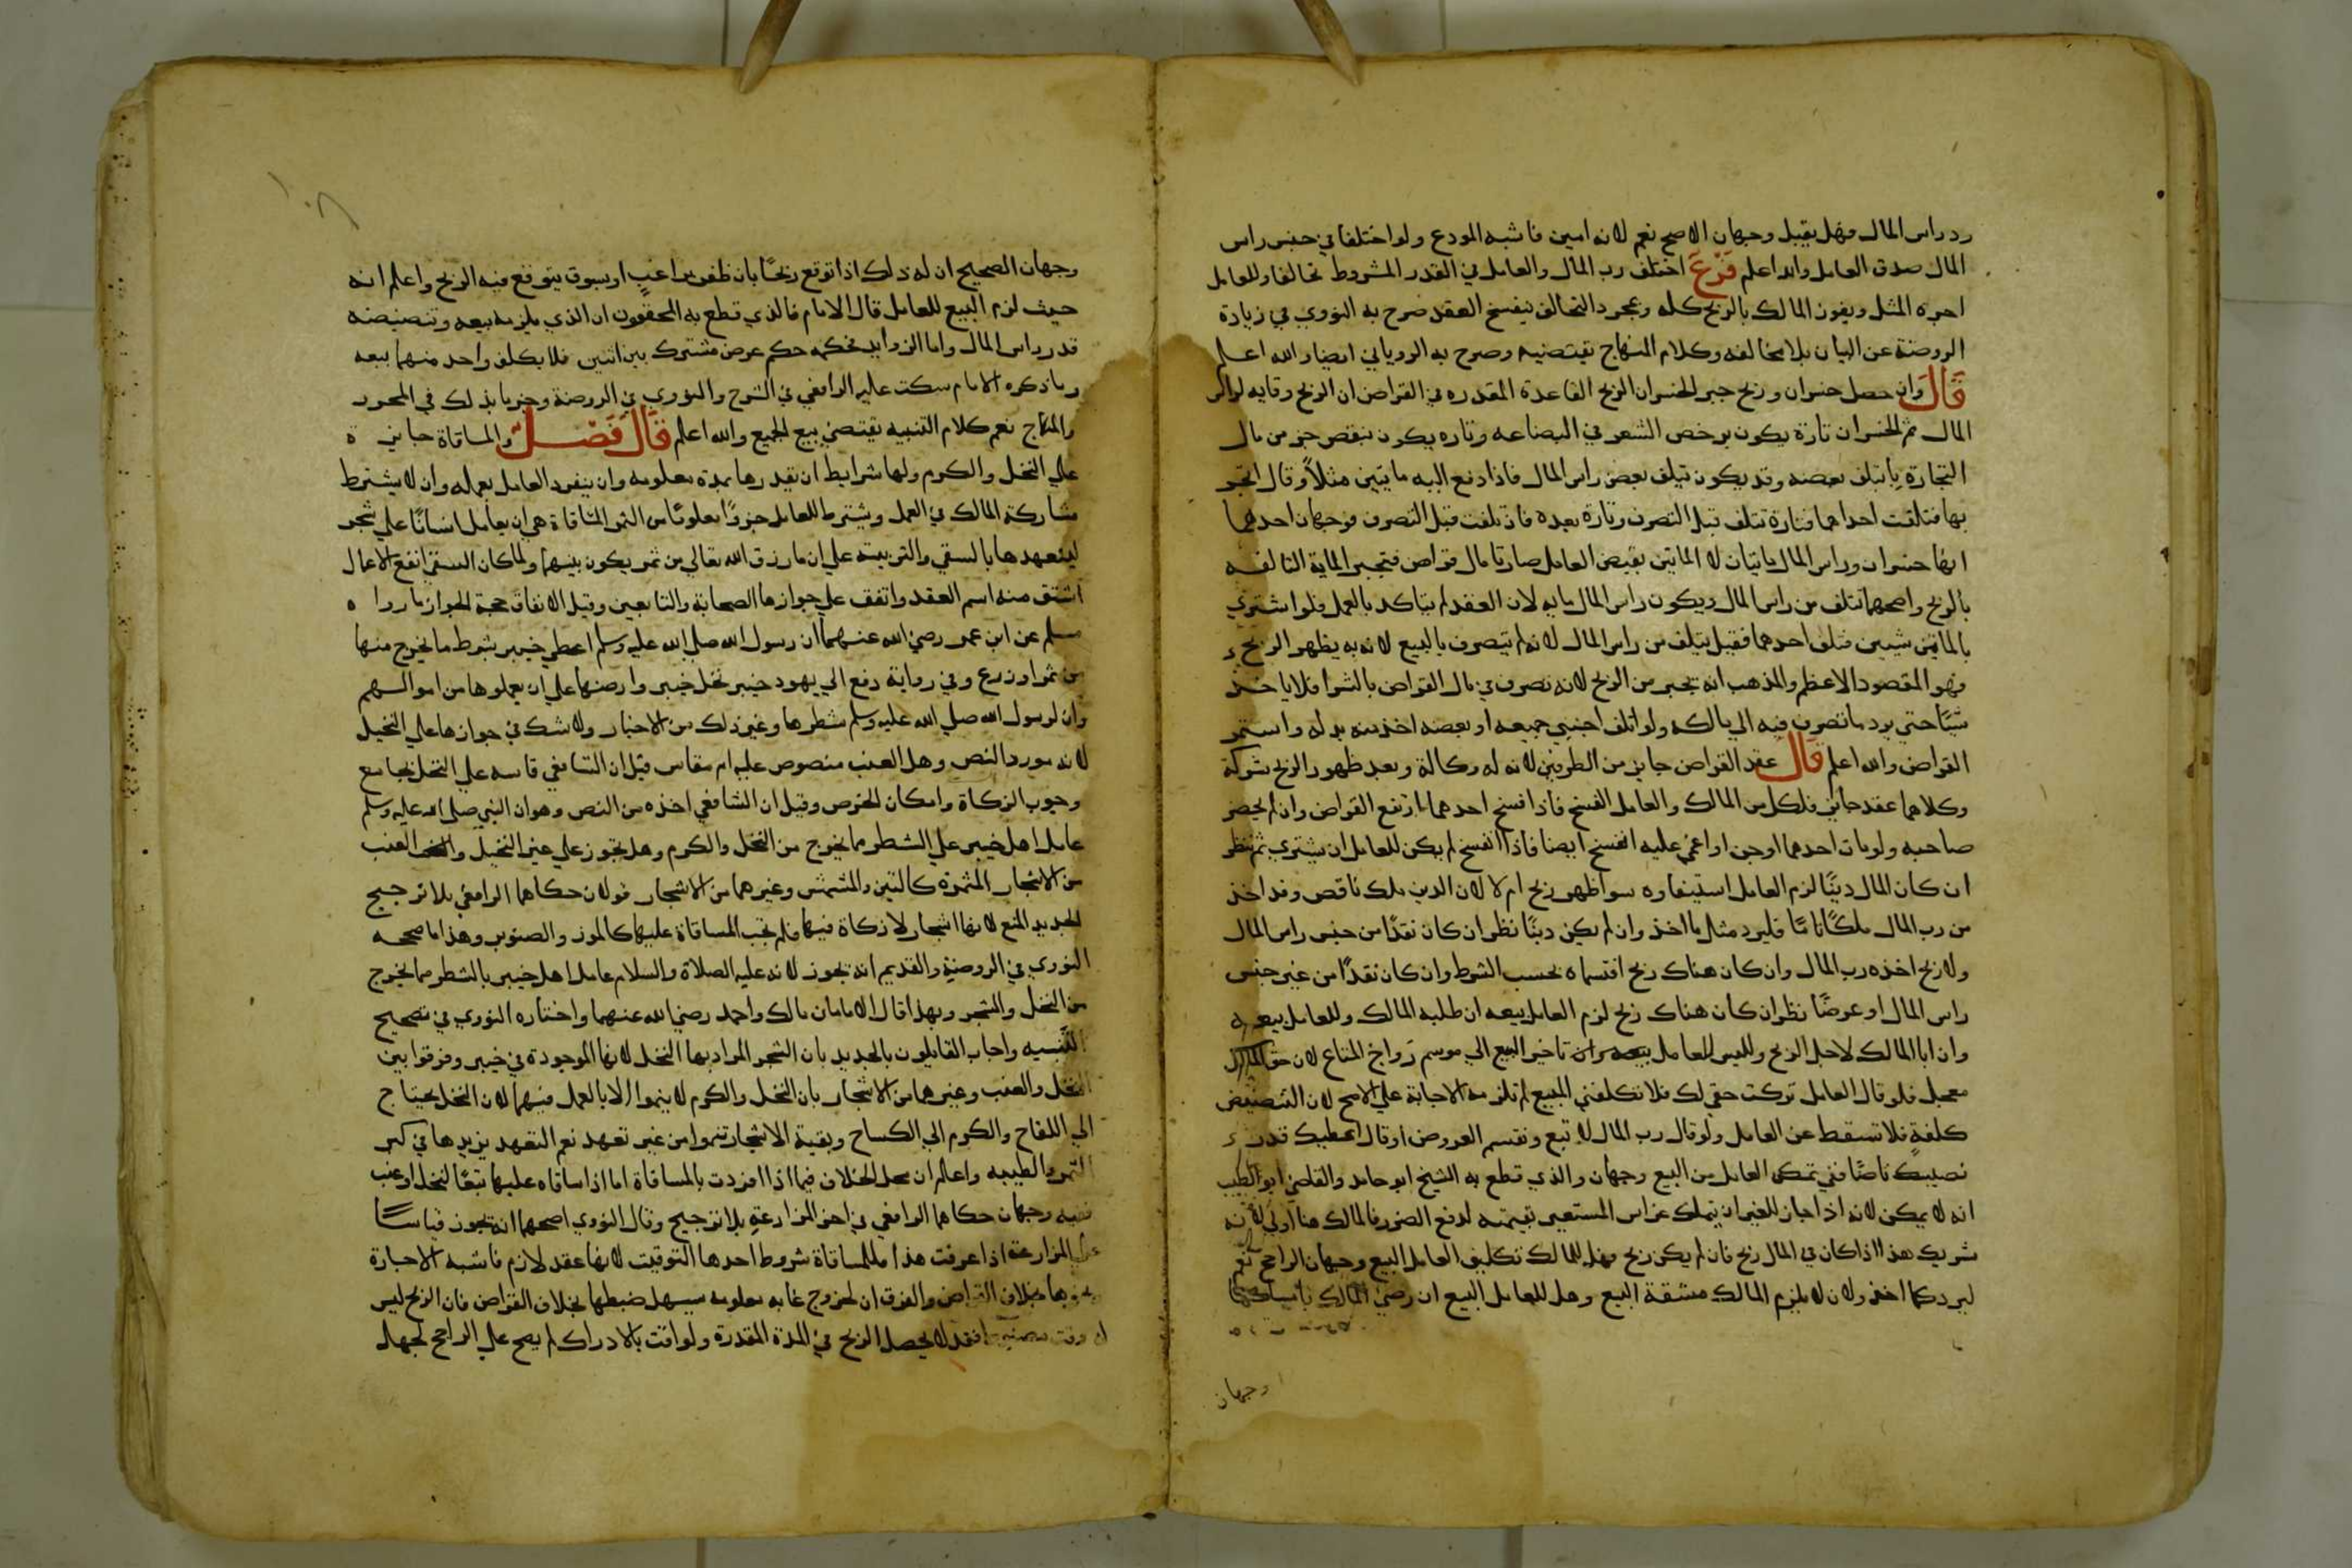 رد راس المال وهل يقبل وجهان الاصح نعم لانه امين فاشبه المودع ولو اختلفا في جنس راس
المال صدق العامل والله اعلم فرع اختلف رب المال والعامل في القدر المشروط تحالفا وللعامل
اجره المثل ويفوز المالك بالربح كله وبمجرد التحالف ينفسخ العقد صرح به النووي في زيادة
الروضة عن البيان بلا مخالفه وكلام المنهاج يقتضيه وصرح به الروياني ايضا والله اعلم
قال وان حصل خسران وربح جبر الخسران الربح القاعدة المقدره في القراض ان الربح وقايه لراس
المال ثم الخسران تارة يكون برخص السعر في البضاعه وتاره يكون بنقص جزء من مال
التجارة بان يتلف بعضه وقد يكون بتلف بعض راس المال فاذا دفع اليه مايتين مثلاً وقال اتجر
بها فتلفت احداهما فتارة تتلف قبل التصرف وتارة بعده فان تلفت قبل التصرف فوجهان احدهما
انها خسران وراس المال مايتان لان المايتين بقبض العامل صارتا مال قراض فتجبر الماية التالفه
بالربح واصحهما تتلف من راس المال ويكون راس المال مايه لان العقد لم يتاكد بالعمل فلو اشترى
بالمايتين شيين فتلف احدهما فقيل يتلف من راس المال لانه لم يتصرف بالبيع لانه به يظهر الربح
فهو المقصود الاعظم والمذهب انه يجبر من الربح لانه تصرف في مال القراض بالشرا فلا ياخذ
شيًا حتي يرد ما تصرف فيه الي مالكه ولو اتلف اجنبي جميعه او بعضه اخذ منه بدله واستمر
القراض والله اعلم قال عقد القراض جايز من الطرفين لانه له وكالة وبعد ظهور الربح شركة
وكلاهما عقد جايز فلكل من المالك والعامل الفسخ فاذا فسخ احدهما ارتفع القراض وان لم يحضر
صاحبه ولو مات احدهما او جن او اغمي عليه انفسخ ايضا فاذا انفسخ لم يكن للعامل ان يشتري ثم ينظر
ان كان المال دينًا لزم العامل استيفاوه سوا ظهر ربح ام لا لان الدين ملك ناقص وقد اخذ
من رب المال ملكًا تامًا فليرد مثل ما اخذ وان لم يكن دينًا نظر ان كان نقدًا من جنس راس المال
ولا ربح اخذه رب المال وان كان هناك ربح اقتسماه بحسب الشرط وان كان نقدًا من غير جنس
راس المال او عرضًا نظر ان كان هناك ربح لزم العامل بيعه ان طلبه المالك وللعامل بيعه
وان ابا المالك لاجل الربح وليس للعامل تاخير البيع الي موسم رَواج المتاع لان حق المالك
معجل فلو قال العامل تركت حقي لك فلا تكلفني البيع لم تلزمه الاجابة علي الاصح لان التنضيض
كلفةٍ فلا تسقط عن العامل ولو قال رب المال لا تبع ونقسم العروض او قال اعطيك قدر
نصيبك ناضًا ففي تمكن العامل من البيع وجهان والذي قطع به الشيخ ابو حامد والقاضي ابو الطيب
انه لا يمكن لانه اذا جاز للمعير ان يتملك غراس المستعير بقيمته لدفع الضرر فالمالك هنا اولي لانه
شريك هذا اذا كان في المال ربح فان لم يكن ربح فهل للمالك تكليف العامل البيع وجهان الراجح نعم
ليرد كما اخذ ولان لا يلزم المالك مشقة البيع وهل للعامل البيع ان رضي المالك بامساكها
وجهان
١٠٨
وجهان الصحيح ان له ذلك اذا توقع ربحًا بان ظفر براغبٍ او بسوق يتوقع فيه الربح واعلم انه
حيث لزم البيع للعامل قال الامام فالذي قطع به المحققون ان الذي يلزمه بيعه وتنضيضه
قدر راس المال واما الزوايد فحكمه حكم عرض مشترك بين اثنين فلا يكلف واحد منهما بيعه
وما ذكره الامام سكت عليه الرافعي في الشرح والنووي في الروضة وجزما بذلك في المحرر
والمنهاج نعم كلام التنبيه يقتضي بيع الجميع والله اعلم قال فصل والمساقاة جايزة
علي النخل والكرم ولها شرايط ان يقدرها بمدة معلومه وان ينفرد العامل بعمله وان لا يشترط
مشاركة المالك في العمل ويشترط للعامل جزوًا معلومًا من الثمر المساقاة هي ان يعامل انسانًا علي شجر
ليتعهدها بالسقي والتربيته علي ان ما رزق الله تعالي من ثمر يكون بينهما ولما كان السقي انفع الاعمال
اشتق منه اسم العقد واتفق علي جوازها الصحابة والتابعين وقيل الاتفاق حجة الجواز ما رواه
مسلم عن ابن عمر رضي الله عنهما ان رسول الله صلي الله عليه وسلم اعطي خيبر بشرط ما يخرج منها
من ثمر او زرع وفي رواية دفع الي يهود خيبر نخل خيبر وارضها علي ان يعملوها من اموالهم
وان لرسول الله صلي الله عليه وسلم شطرها وغير ذلك من الاخبار ولا شك في جوازها علي النخيل
لانه مورد النص وهل العنب منصوص عليه ام مقاس قيل ان الشافعي قاسه علي النخل بجامع
وجوب الزكاة وامكان الخرص وقيل ان الشافعي اخذه من النص وهو ان النبي صلي الله عليه وسلم
عامل اهل خيبر علي الشطر مما يخرج من النخل والكرم وهل تجوز علي غير النخيل والعنب
من الاشجار المثمرة كالتين والمشمش وغيرهما من الاشجار قولان حكاهما الرافعي بلا ترجيح
الجديد المنع لانها اشجار لا زكاة فيها فلم تجب المساقاة عليها كالموز والصنوبر وهذا ما صححه
النووي في الروضة والقديم انه يجوز لانه عليه الصلاة والسلام عامل اهل خيبر بالشطر مما يخرج
من النخل والشجر وبهذا قال الامامان مالك واحمد رضي الله عنهما واختاره النووي في تصحيح
التنبيه واجاب القايلون بالجديد بان الشجر المراد بها النخل لانها الموجودة في خيبر وفرقوا بين
النخل والعنب وغيرهما من الاشجار بان النخل والكرم لا ينموا الا بالعمل فيهما لان النخل يحتاج
الي اللقاح والكرم الي الكساح وبقية الاشجار تنموا من غير تعهد نعم التعهد يزيدها في كبر
الثمر والطيبه واعلم ان محل الخلاف فيما اذا افردت بالمساقاة اما اذا ساقاه عليها تبعًا لنخل او عنب
ففيه وجهان حكاهما الرافعي في اخر المزارعةِ بلا ترجيح وقال النووي اصحهما انه يجوز قياسًا
علي المزارعة اذا عرفت هذا فللمساقاة شروط احدها التوقيت لانها عقد لازم فاشبه الاجارة
ونحوها بخلاف القراض والفرق ان لخروج غايه معلومه يسهل ضبطها بخلاف القراض فان الربح ليس
له وقت فقد لا يحصل الربح في المدة المقدرة ولو اقت بالادراك لم يصح علي الراجح لجهله